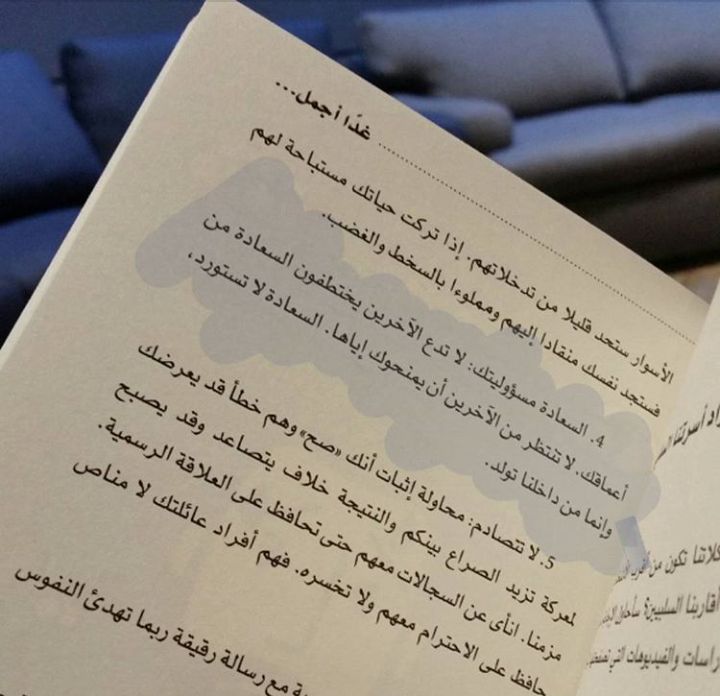 غدًا أجمل...
الأسوار ستحد قليلا من تدخلاتهم. إذا تركت حياتك مستباحة لهم
فستجد نفسك منقادا إليهم ومملوءا بالسخط والغضب.
4. السعادة مسؤوليتك: لا تدع الآخرين يختطفون السعادة من
أعماقك. لا تنتظر من الآخرين أن يمنحوك إياها. السعادة لا تستورد،
وإنما من داخلنا تولد.
5. لا تتصادم: محاولة إثبات أنك «صح» وهم خطأ قد يعرضك
لمعركة تزيد الصراع بينكم والنتيجة خلاف يتصاعد وقد يصبح
مزمنا. انأى عن السجالات معهم حتى تحافظ على العلاقة الرسمية.
حافظ على الاحترام معهم ولا تخسره. فهم أفراد عائلتك لا مناص
مع رسالة رقيقة ربما تهدئ النفوس
راد أسرتنا
كلاتنا تكون من
أقاربنا السلبيين؟
راسات والفيديوهات التي